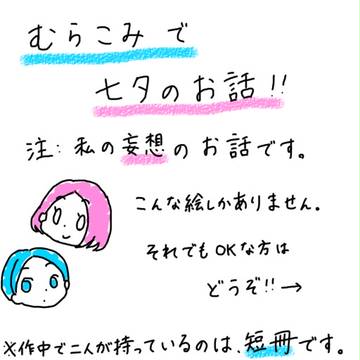 むらこみで
七夕のお話!!
注:私の妄想のお話です。
こんな絵しかありません。
それでもOKな方は
どうぞ!!→
※作中で二人が持っているのは、短冊です。